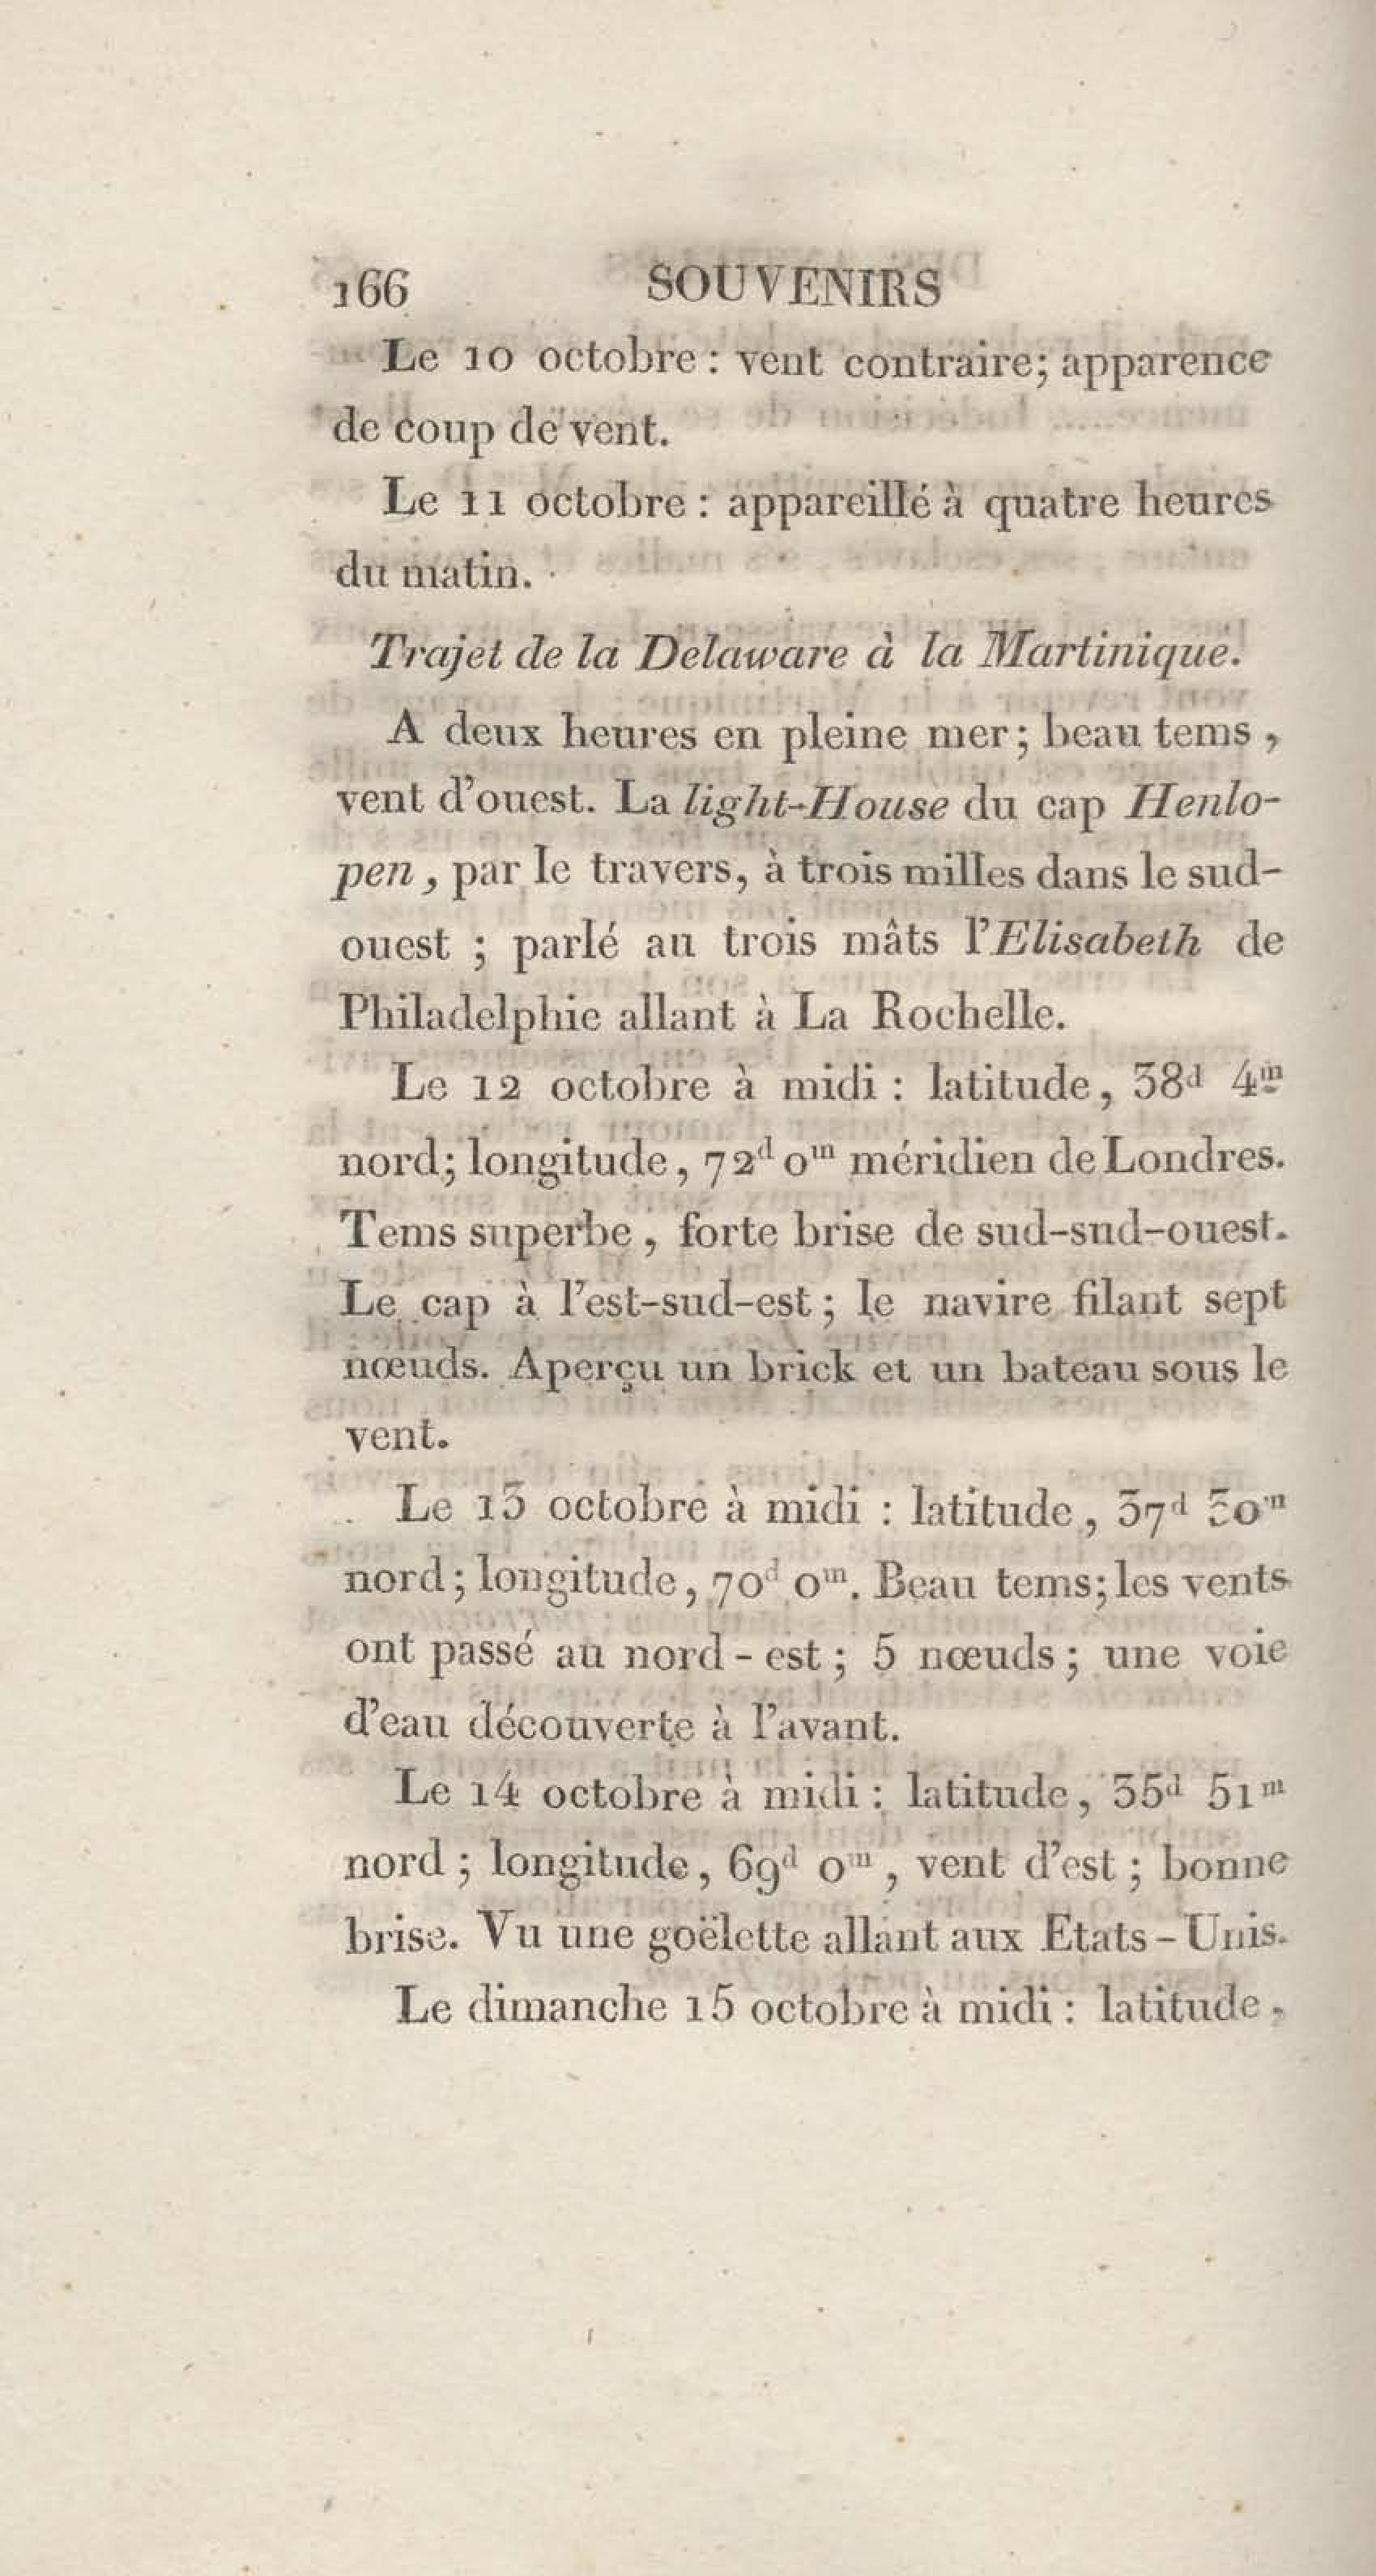 166 SOUVENIRS
Le 10 octobre : vent contraire; apparence
de coup de vent.
Le 11 octobre : appareillé à quatre heures
du matin.
Trajet de la Delaware à la Martinique.
A deux heures en pleine mer; beau tems,
vent d'ouest. La light-House du cap Henlo-
pen, par le travers, à trois milles dans le sud-
ouest ; parlé au trois mâts l'Elisabeth de
Philadelphie allant à La Rochelle.
Le 12 octobre à midi : latitude, 38d 4m
nord; longitude, 72d 0m méridien de Londres.
Tems superbe, forte brise de sud-sud-ouest.
Le cap à l'est-sud-est; le navire filant sept
nœuds. Aperçu un brick et un bateau sous le
vent.
Le 13 octobre à midi : latitude, 37d 30m
nord; longitude, 70d 0m. Beau tems; les vents
ont passé au nord-est; 5 nœuds; une voie
d'eau découverte à l'avant.
Le 14 octobre à midi : latitude, 35d 51m
nord; longitude, 69d 0m, vent d'est; bonne
brise. Vu une goëlette allant aux Etats-Unis.
Le dimanche 15 octobre à midi : latitude,